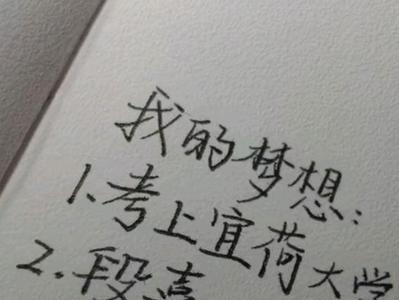 我的梦想:
1.考上宜荷大学
2.段